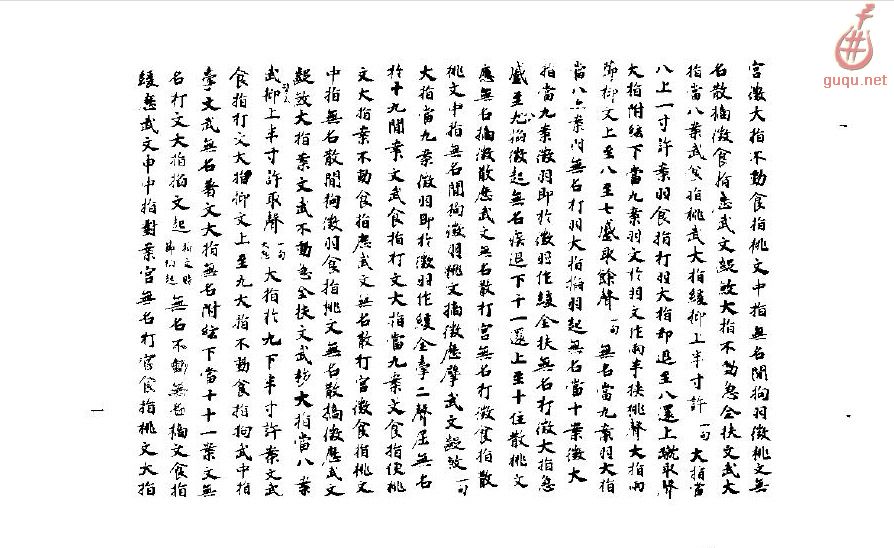 宮徵大指不動食指挑文中指無名間拘羽徵挑文無
名散摘徵食指應武文緩放大指不動急全扶文武大
指當八案武食指挑武大指緩抑上半寸許一句大指當
八上一寸許案羽食指打羽大指却退至八還上取聲
大指附絃下當九案羽文於羽文作兩半扶挑聲大指
節抑文上至八至七取餘聲一句無名當九案羽大指
當八案無名打羽大指掐羽起無名當十案徵大
指當九案徵羽即於徵羽作緩全扶無名打徵大指急
至徵起無名疾退下十一還上至十住散挑文
應無名摘徵散應武文無名散打宮無名打徵食指散
挑文中指無名間拘徵羽挑文摘徵應武文緩放一句
大指當九案徵羽即於徵羽作緩全二聲無名
於十九間案文武食指打文大指當九案文食指使挑
文大指案不動食指應武文無名散打宮徵食指挑文
中指無名散間拘徵羽食指挑文無名散摘徵應武文
緩放大指案文武不動急全扶文武大指當八案
武抑上半寸許取聲一句大指於九下半寸許案文武
食指打文大指抑文上至九大指不動食指拘武中指
文武無名文大指無名附絃下當十十一案文無
名打文大指掐文起無名不動無名摘文食指
緩應武文中指對案宮無名打宮食指挑文大指
一
guqu.net